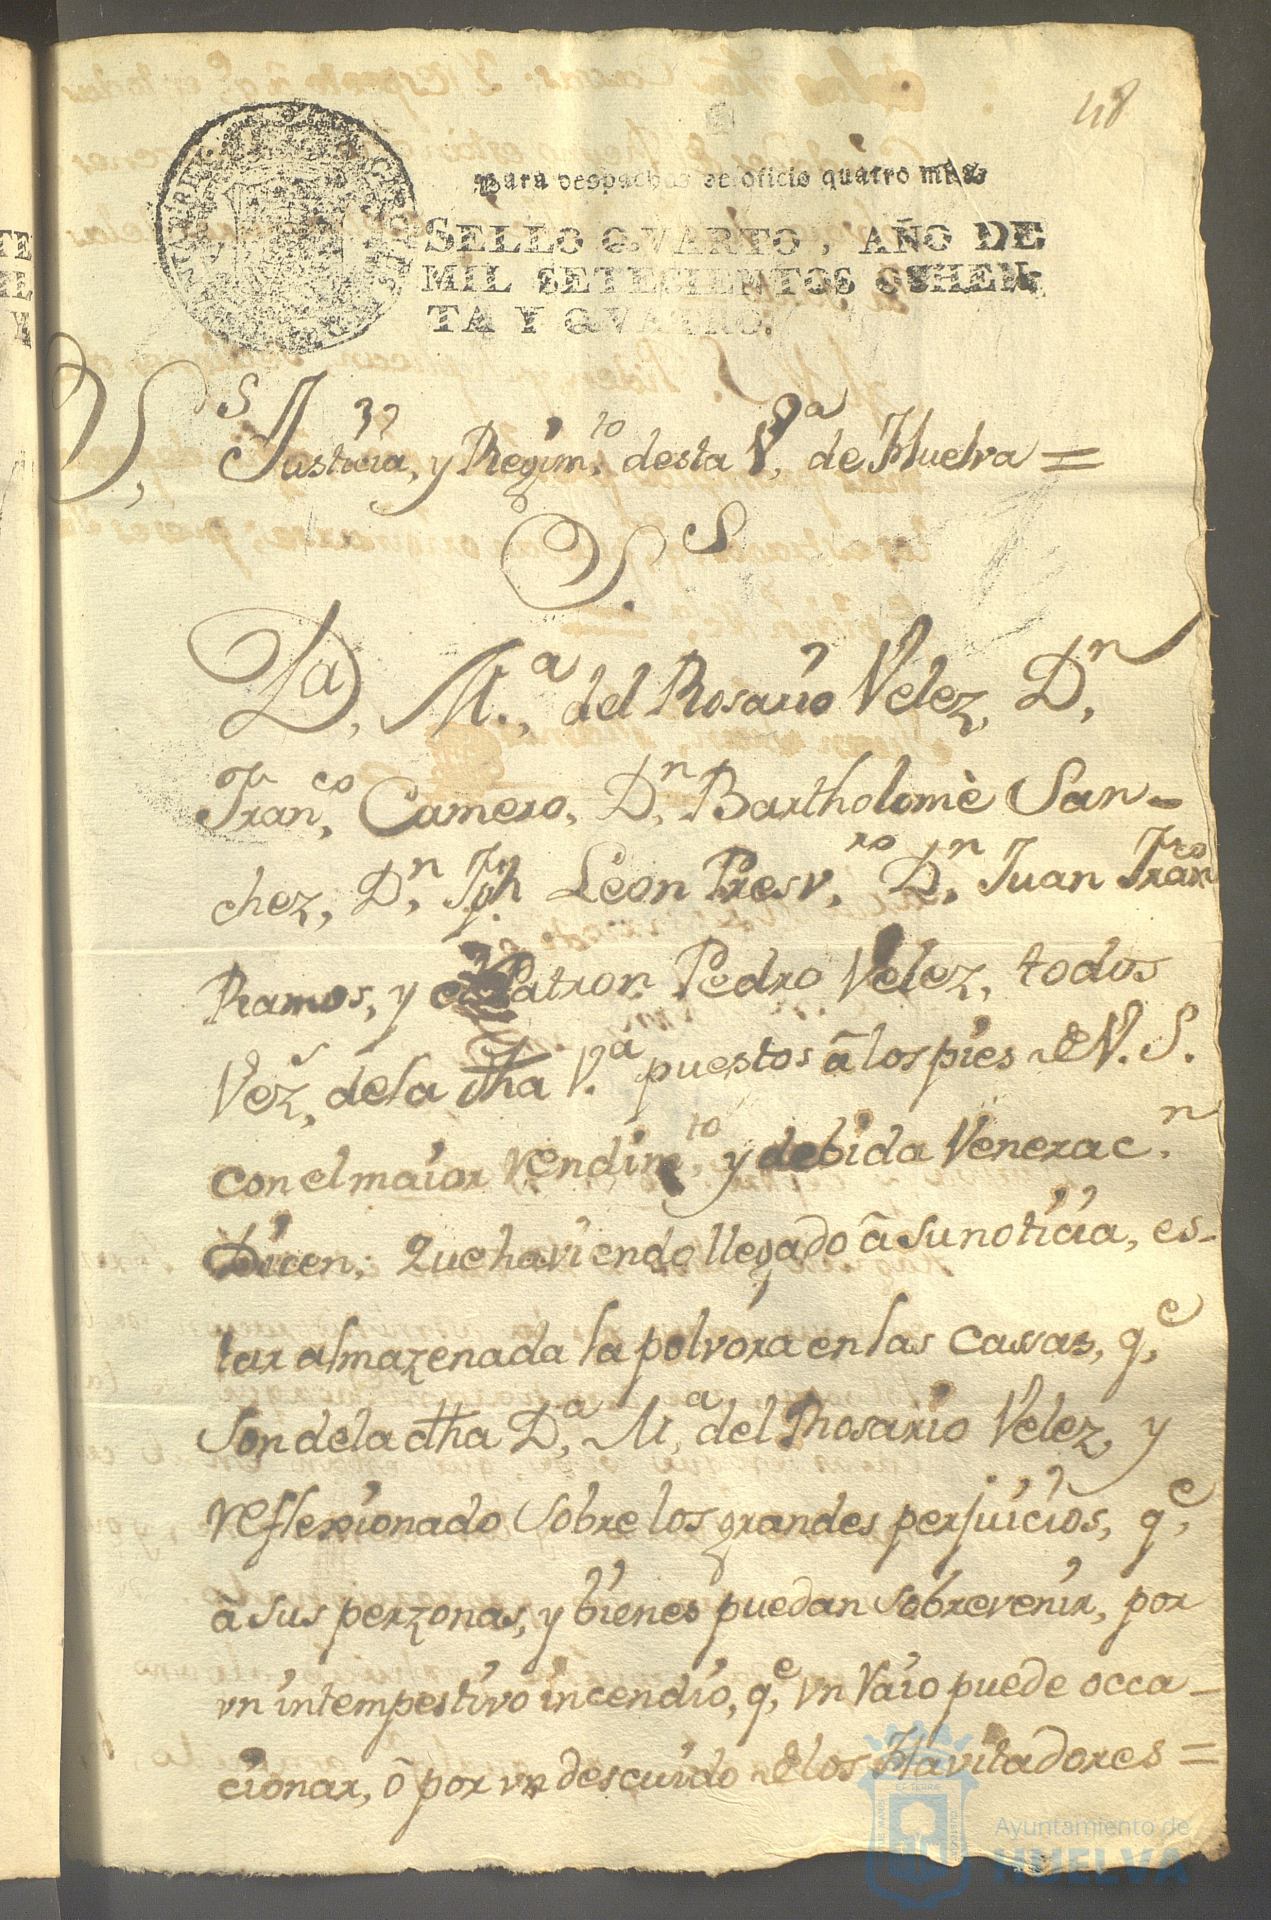 48
Para despachos de oficio quatro mrs.
SELLO QVARTO, AÑO DE
MIL SETECIENTOS OCHEN-
TA Y QVATRO.
S.s Justicia, y Regim.to desta V.a de Huelva =
S.S
D.a M.a del Rosario Velez, D.n
Fran.co Camero, D.n Bartholomè San-
chez, D.n Jph Leon Presv.ro D.n Juan Fran.co
Ramos, y el Patron Pedro Velez, todos
Vez.s de la dha V.a puestos â los pies de V. S.
con el maior rendim.to y debida Venerac.n
Dicen; Que haviendo llegado â su noticia, es-
tar almazenada la polvora en las cassas, q.e
son de la dha D.a M.a del Rosario Velez, y
reflexionado sobre los grandes perjuicios, q.e
â sus perzonas, y bienes puedan sobrevenir, por
vn intempestivo incendio, q.e vn Raio puede occa-
cionar, ô por vn descuido de los Havitadores =
Ayuntamiento de
HUELVA